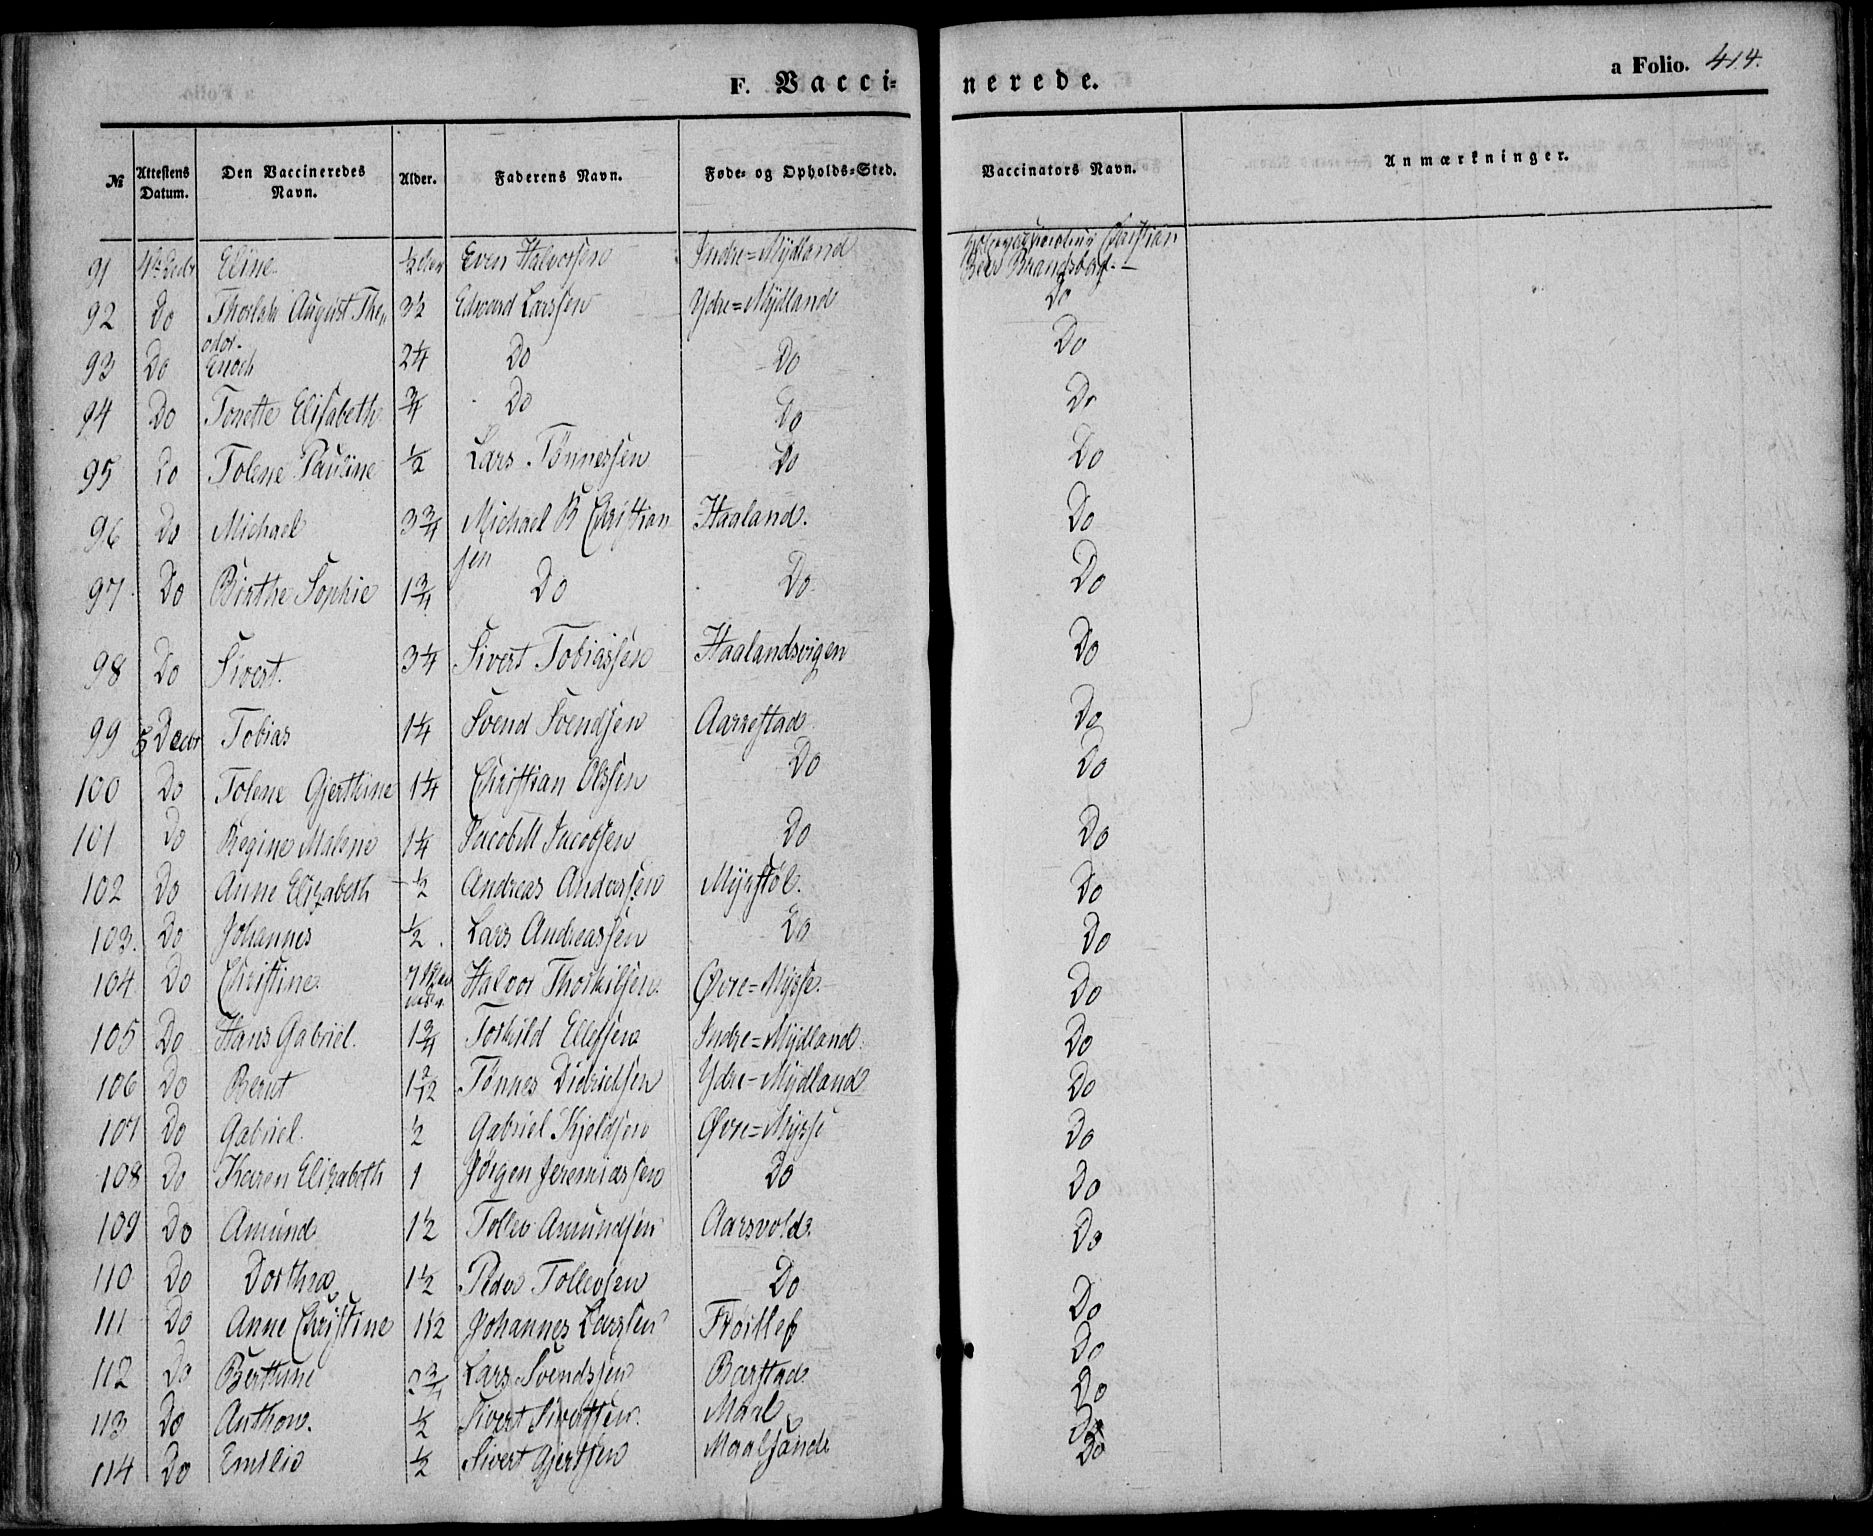 F. Vacci-
nerede.
a Folio. 414.
№ Attestens Datum. Den Vaccineredes Navn. Alder. Faderens Navn. Føde- og Opholds-Sted. Vaccinators Navn. Anmærkninger.
91 4de Decbr Eline. ½ Even Halvorsen Indre=Mydland Christian
Brandsborg.
92 Do August Theo 3½ Edward Larssen Ydre=Mydland Do
odor.
93 Do Enoch 2¼ Do Do Do
94 Do Tonette Elisabeth ¾ Do Do Do
95 Do Tolene Pauline ½ Lars Tønnessen Do Do
96 Do Michael 3¾ Michael B Christian Haaland. Do
sen
97 Do Birthe Sophie 1¾ Do Do Do
98 Do Sivert. 3¼ Sivert Tobiassen Haalandsvigen Do
99 5 Decbr Tobias 1¼ Svend Svendsen Aarrestad Do
100 Do Tolene Gjerthine 1¼ Christian Olssen Do Do
101 Do Regine Malene 1¼ Jacob M Jacobsen Do Do
102 Do Anne Elizabeth ½ Andreas Anderssen Myrstøl. Do
103. Do Johannes ½ Lars Andreassen Do Do
104 Do Christine. 7 Halvor Thorkilsen Øvre=Mysse. Do
105 Do Hans Gabriel. 1¾ Torkild Ellefsen Indre=Mydland Do
106 Do Bernt 1 2/12 Tønnes Didrichsen Ydre=Mydland Do
107 Do Gabriel. ½ Gabriel Kjeldsen Øvre=Mysse Do
108 Do Karen Elizabeth 1 Jørgen Jeremiassen Do Do
109 Do Amund 1½ Tollev Amundsen Aarsvold. Do
110 Do Dorthea 1½ Peder Tollevsen Do Do
111 Do Anne Christine 1½ Johannes Larssen Do
112 Do Berthine Lars Svendsen Barstad Do
113 Do Anthon. ½ Sivert Sivertsen. Do
114 Do Emilie ½ Sivert Gjertsen Do